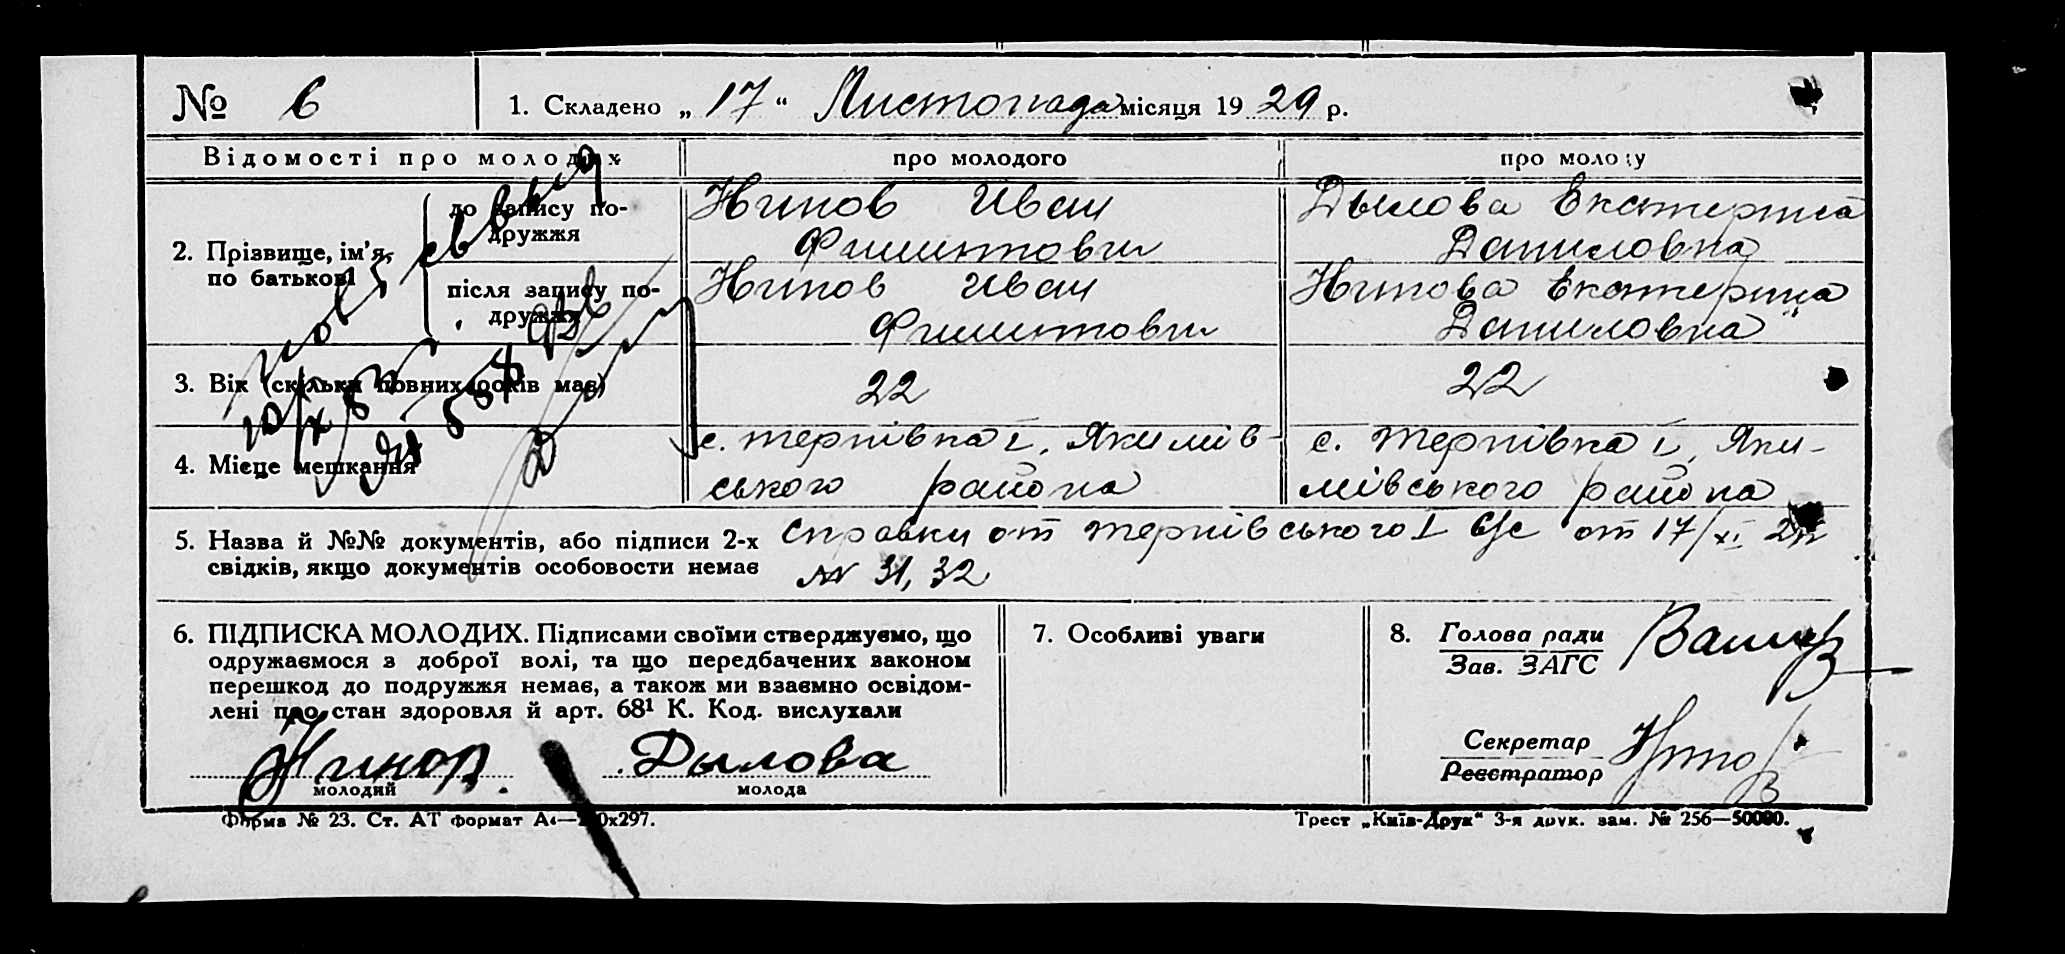 № 6
1. Складено „ 17 “ Листопада місяця 19 29 р.
Відомості про молодих
про молодого
про молоду
2. Прізвище, ім'я, по батькові
до запису по-
дружжя
Нинов Иван
Филиптович
Дылова Екатерина
Даниловна
після запису по-
дружжя
Нинов Иван
Филиптович
Нинова Екатерина
Даниловна
3. Вік (скільки повних років має)
22
22
4. Місце мешкання
с. Тернівка І, Якимів-
ського района
с. Тернівка І, Яки-
мівського района
5. Назва й №№ документів, або підписи 2-х
свідків, якщо документів особовости немає
Справки от Тернівського І С/с от 17/XI 29
№ 31, 32
6. ПІДПИСКА МОЛОДИХ. Підписами своїми стверджуємо, що
одружаємося з доброї волі, та що передбачених законом
перешкод до подружжя немає, а також ми взаємно освідом-
лені про стан здоровля й арт. 68¹ К. Код. вислухали
Нинов.
Дылова
молодий
молода
7. Особливі уваги
8. Голова ради
Зав. ЗАГС
Секретар
Реєстратор
Форма № 23. Ст. АТ формат А4—210х297.
Трест „Київ-Друк“ 3-я друк. зам. № 256—50000.